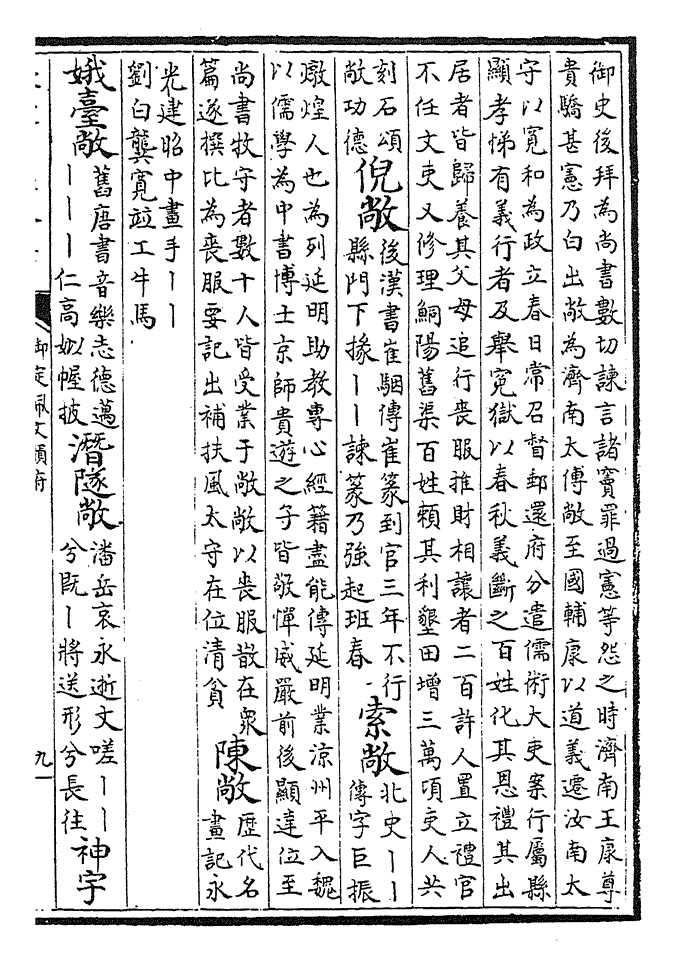 御史後拜為尚書數切諫言諸竇罪過憲等怨之時濟南王康尊
貴驕甚憲乃白出敞為濟南太傅敞至國輔康以道義遷汝南太
守以寛和為政立春日常召督郵還府分遣儒術大吏案行屬縣
顯孝悌有義行者及舉寃獄以春秋義斷之百姓化其恩禮其出
居者皆歸養其父母追行喪服推財相讓者二百許人置立禮官
不任文吏又修理鮦陽舊渠百姓賴其利墾田增三萬頃吏人共
刻石頌
敞功德
倪敞
後漢書崔駰傳崔篆到官三年不行
縣門下掾丨丨諫篆乃強起班春
索敞
北史丨丨
傳字巨振
燉煌人也為列延明助教專心經籍盡能傳延明業涼州平入魏
以儒學為中書博士京師貴遊之子皆敬憚威嚴前後顯達位至
尚書牧守者數十人皆受業于敞敞以喪服散在衆
篇遂撰比為喪服要記出補扶風太守在位清貧
陳敞
歴代名
畫記永
光建昭中畫手丨丨
劉白龔寛並工牛馬
娥臺敞
舊唐書音樂志德邁
丨丨丨仁高姒幄披
潛隧敞
潘岳哀永逝文嗟丨丨
兮既丨將送形兮長往
神宇
御定佩文韻府
九一